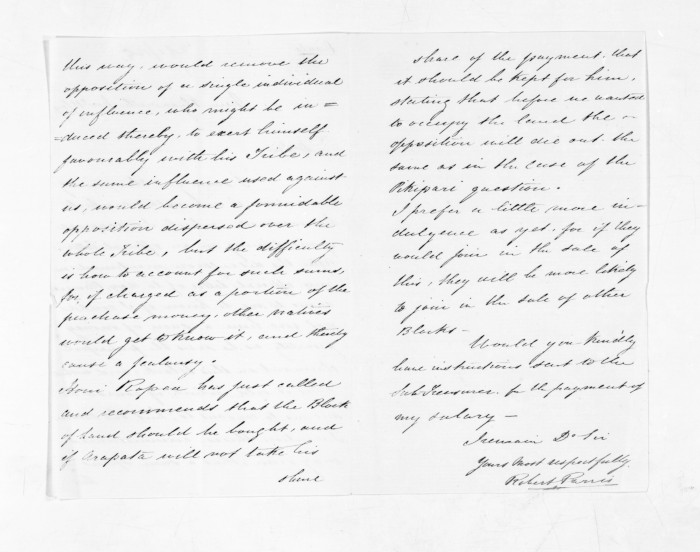 this way, would remove the
opposition of a single individual
of influence, who might be in=
=duced thereby, to exert himself
favourably with his Tribe, and
the same influence used against
us, would become a formidable
opposition dispersed over the
whole Tribe, but the difficulty
is how to account for such sums,
for, if charged as a portion of the
purchase money, other natives
would get to know it, and thereby
cause a jealousy.
Honi Ropiha has just called
and recommends that the Block
of Land should be bought, and
if Arapata will not take his
share
share of the payment, that
it should be kept for him,
stating that before we wanted
to occupy the land the
opposition will die out the
same as in the case of the
question.
I prefer a little more in-
dulgence as yet, for if they
would join in the sale of
this, they will be more likely
to join in the sale of other
Blocks—
Would you kindly
have instructions sent to the
Sub Treasurer for the payment of
my salary—
I remain Dr Sir
Yours most respectfully
Robert Parris